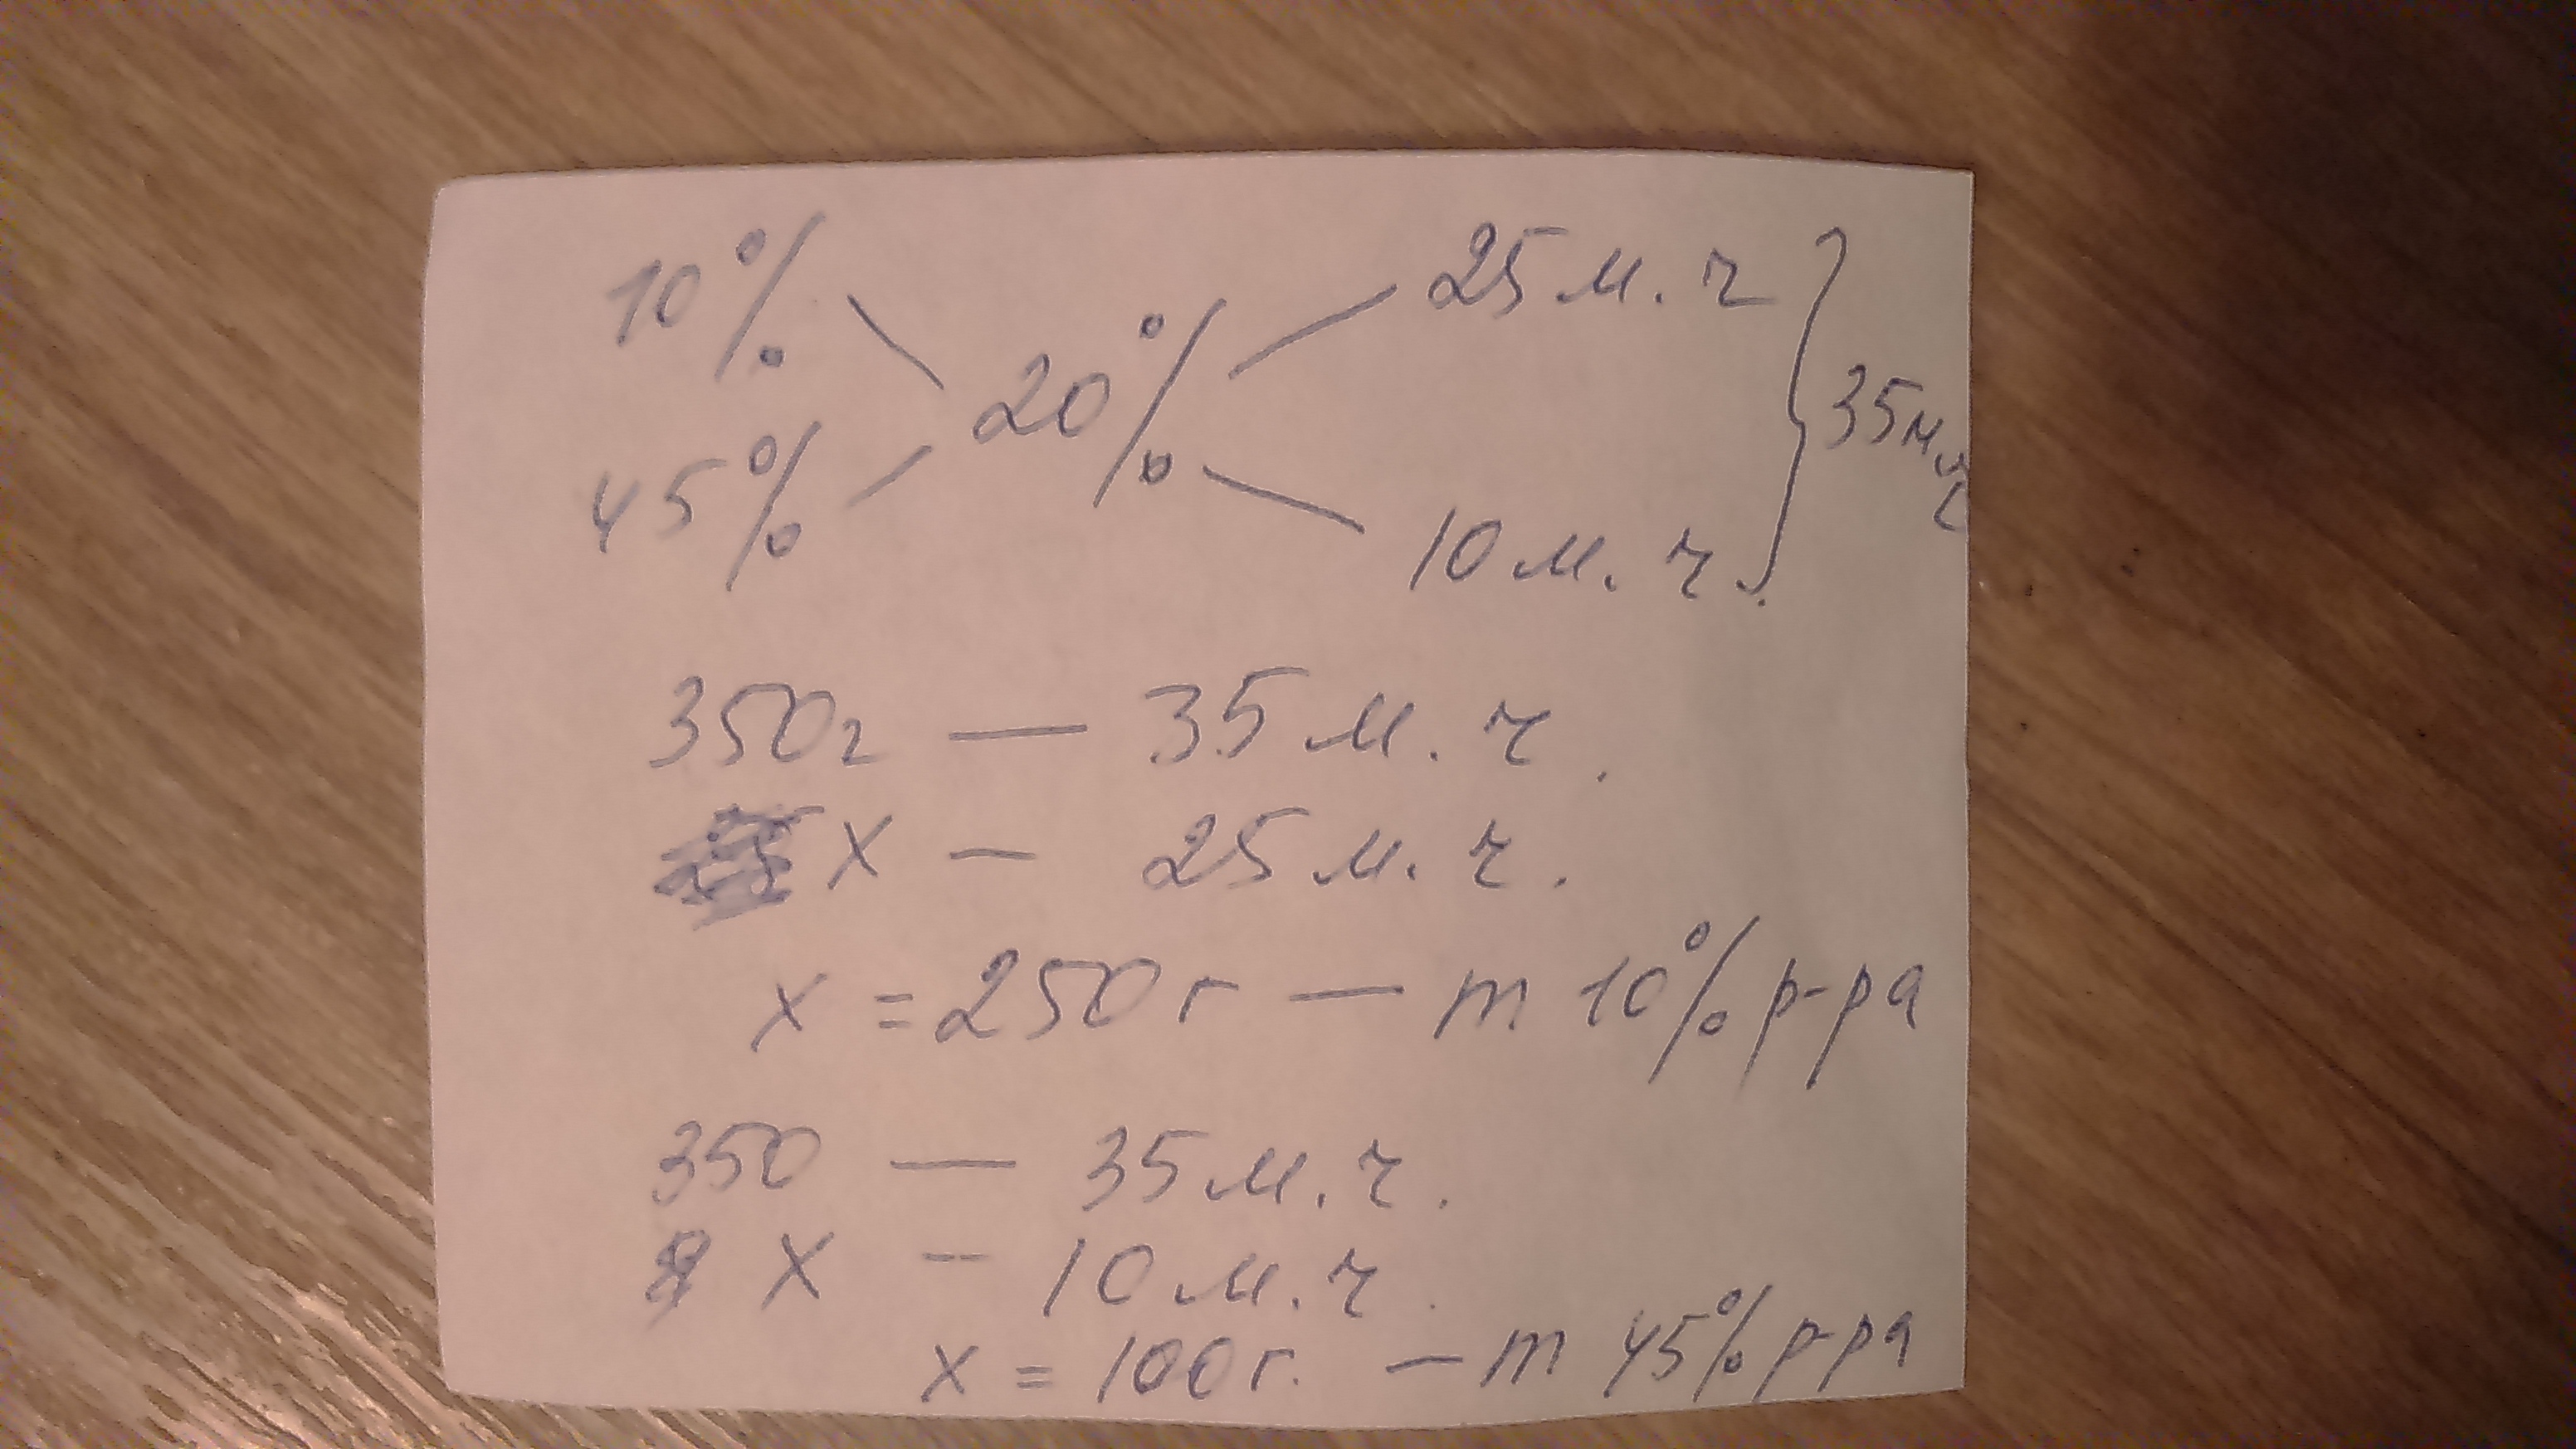 10% 25 м. ч
20% 35 м.ч
45% 10 м. ч.
350г — 35 м. ч.
х — 25 м. ч.
х = 250 г — m 10% р-ра
350 — 35 м. ч.
х — 10 м. ч.
х = 100 г. — m 45% р-ра